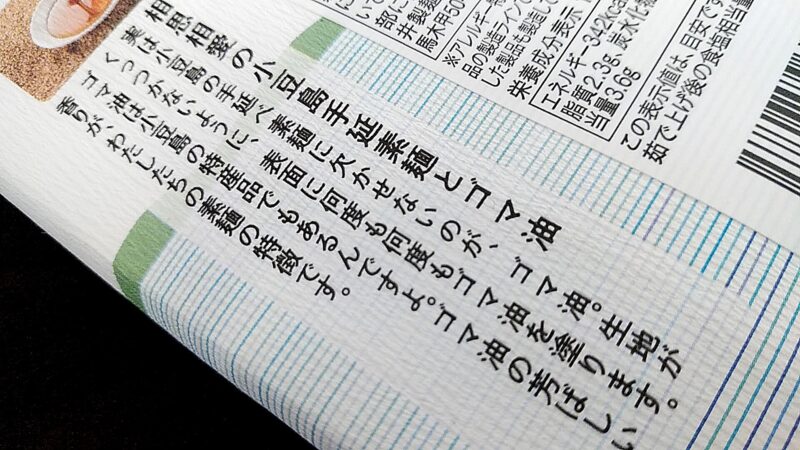 部に
井製麺
馬木甲50
※アレルギー
品の製造ラインで
した製品も製造して
栄養成分表示
エネルギー342kcal
脂質2.3g 炭水化物
当量3.6g
この表示値は、目安です
茹で上げ後の食塩相当量
相思相愛の小豆島手延素麺とゴマ油
実は小豆島の手延べ素麺に欠かせないのが、ゴマ油。生地が
くっつかないように、表面に何度も何度もゴマ油を塗ります。
ゴマ油は小豆島の特産品でもあるんですよ。ゴマ油の芳ばしい
香りが、わたしたちの素麺の特徴です。